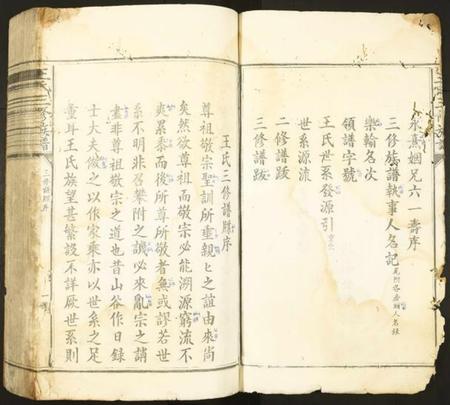 永熹姻兄六一壽序
三修族譜執事人名記
樂輸名次
領譜字號
王氏世系發源引
世系源流
二修譜跋
三修譜跋
王氏三修譜牒序
尊祖敬宗聖訓所重親親之誼由來尚
矣然欲尊祖而敬宗必能溯源窮流不
爽累黍而後所尊所敬者無或謬若世
系不明非召攀附之譏必來亂宗之誚
盡非尊祖敬宗之道也昔山谷作日錄
士大夫倣之以作家乘亦以世系之足
重耳王氏族望甚繁設不詳厥世系則
三修譜牒序